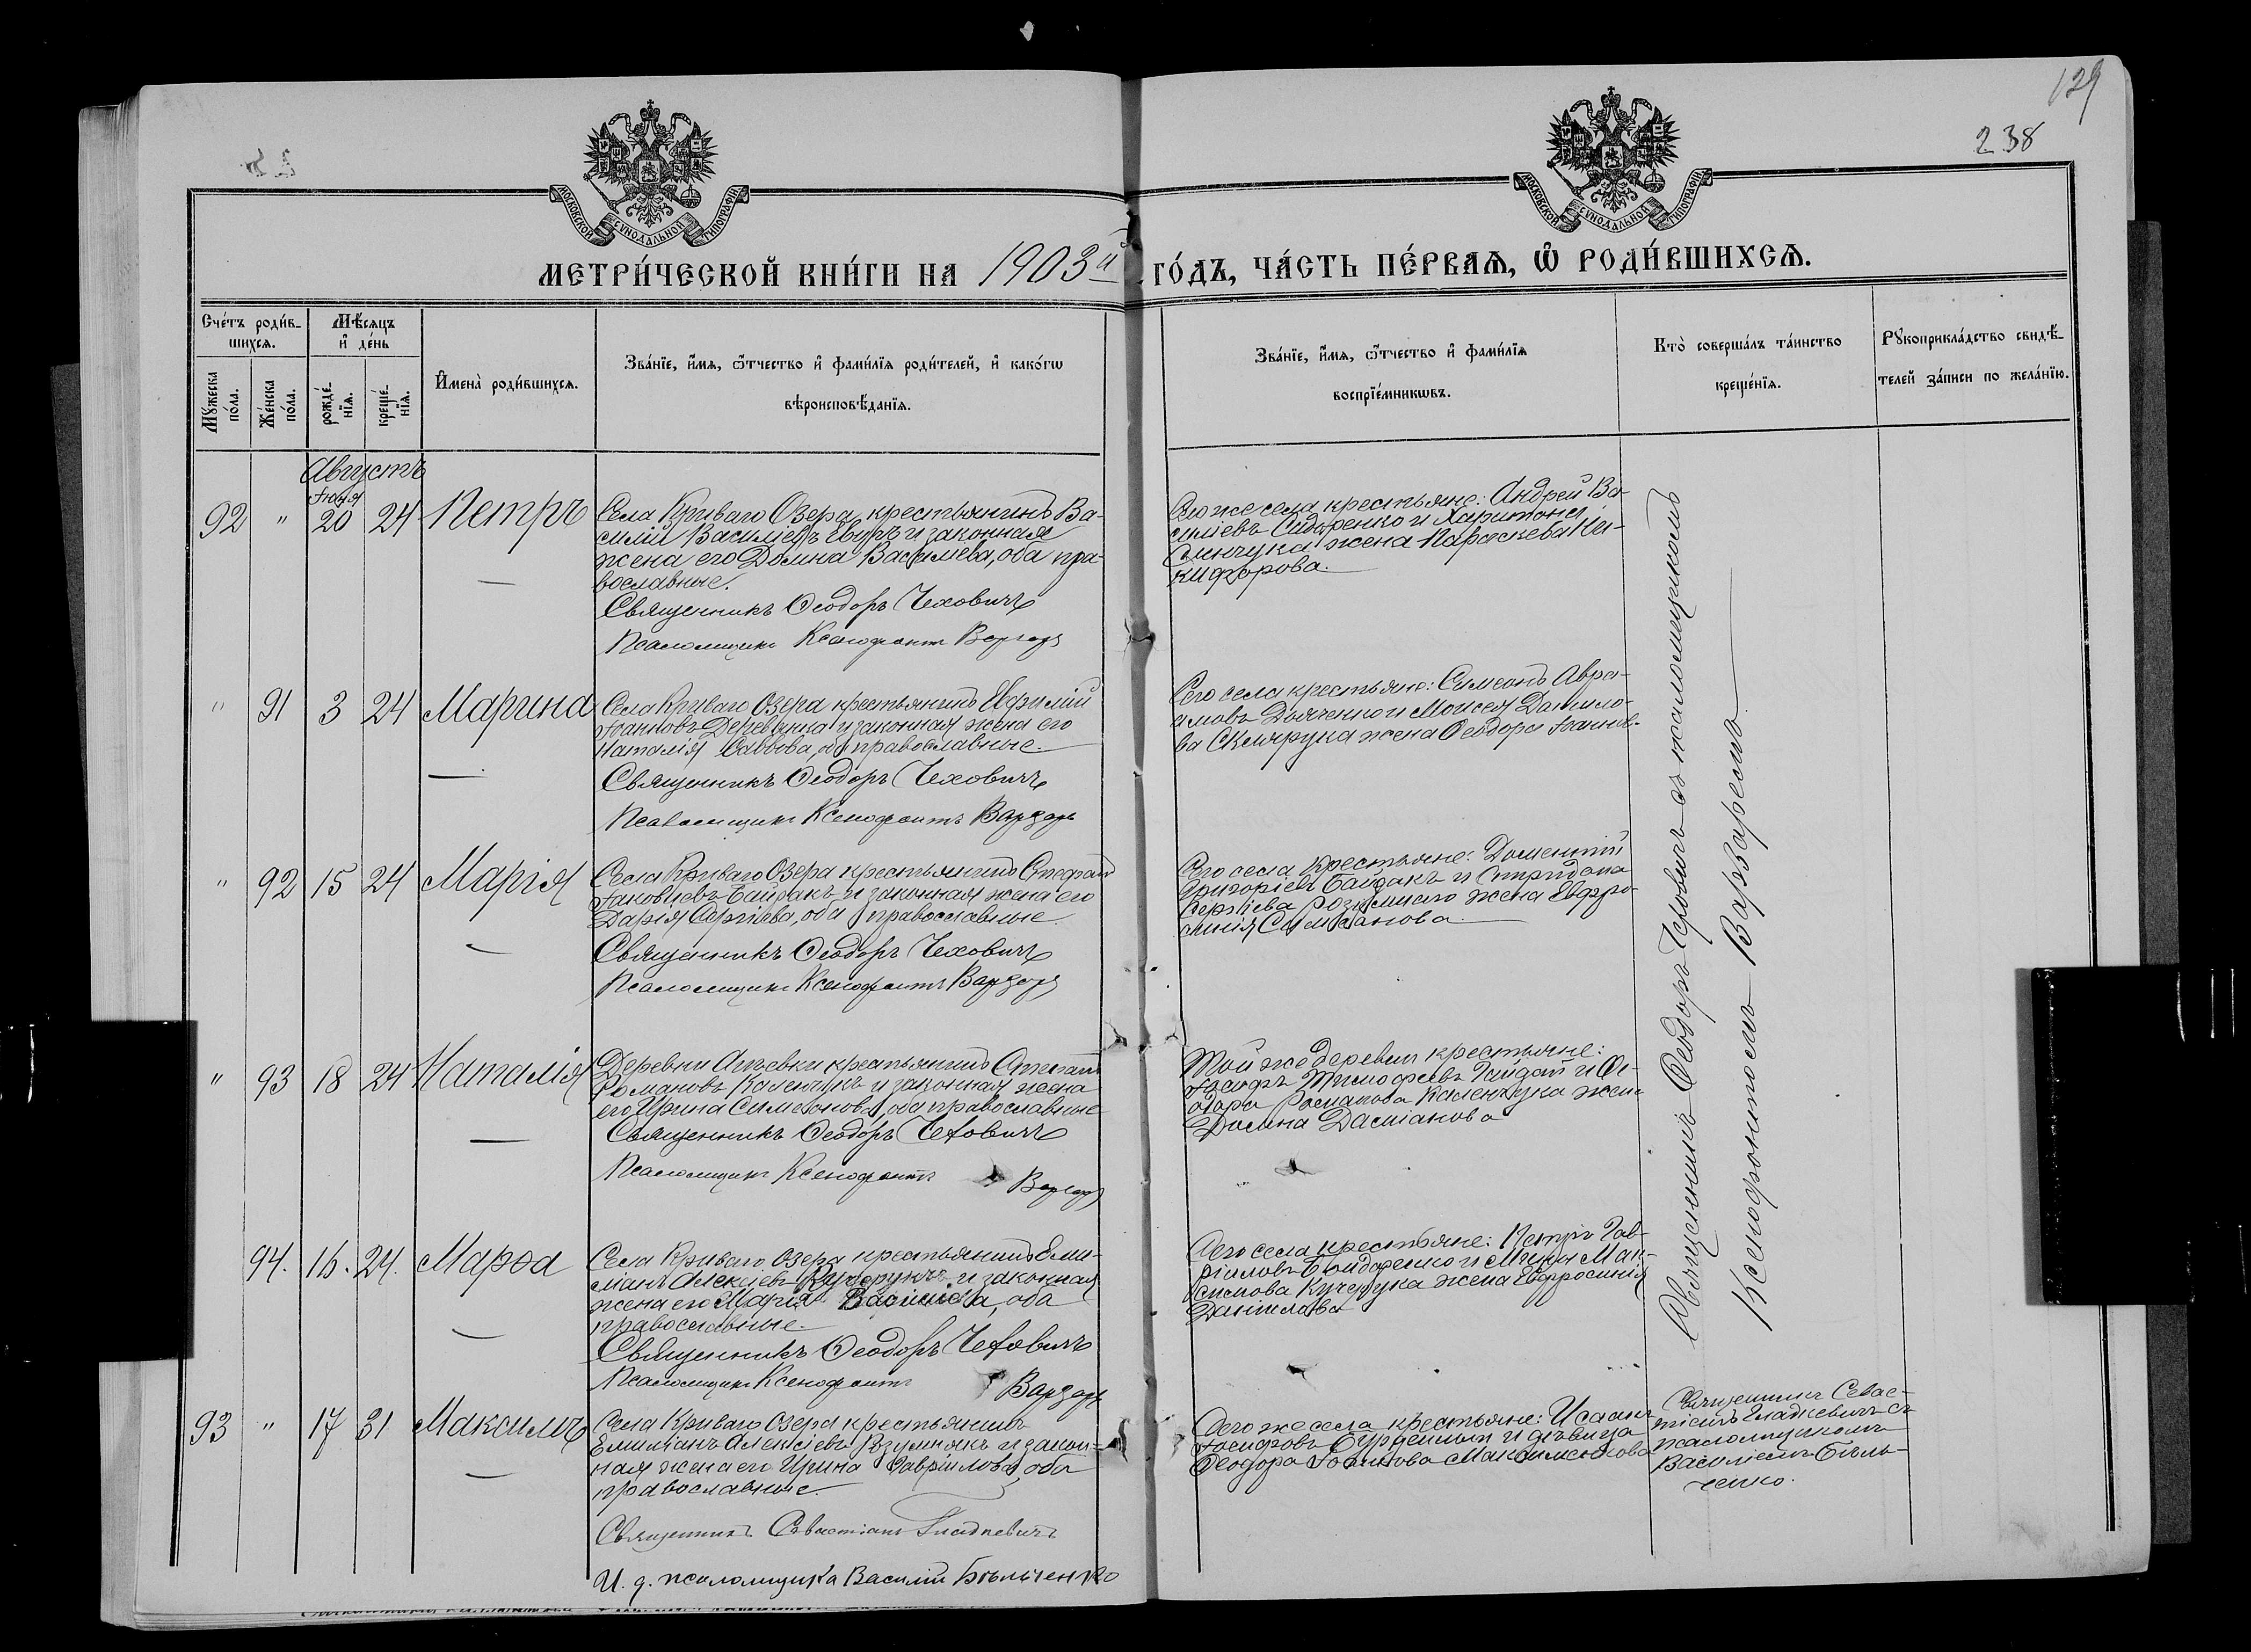 129
238
МОСКОВСКОЙ СѴНОДАЛЬНОЙ ТИПОГРАФІИ
МОСКОВСКОЙ СѴНОДАЛЬНОЙ ТИПОГРАФІИ
МЕТРИ́ЧЕСКОЙ КНИ́ГИ НА 1903й ГО́ДЪ, ЧА́СТЬ ПЕ́РВАѦ, Ѡ҆ РОДИ́ВШИХСѦ.
Сче́тъ роди́в-
шихсѧ.
Мѣ́сяцъ
и҆ де́нь
Мꙋ́жеска по́ла.
Же́нска по́ла.
рожде́-
нїѧ.
креще́-
нїѧ.
И҆мена̀ роди́вшихсѧ.
Зва́нїе, и҆́мѧ, ѻ҆́тчество и҆ фами́лїѧ роди́телей, и҆ како́гѡ
вѣроисповѣ́данїѧ.
Зва́нїе, и҆́мѧ, ѻ҆́тчество и҆ фами́лїѧ
воспрїе́мникѡвъ.
Кто̀ соверша́лъ та́инство
креще́нїѧ.
Рꙋкоприкла́дство свидѣ́-
телей за́писи по жела́нїю.
Августъ
92 " 20 24 Петръ
Села Криваго Озера крестьянинъ Ва-
силій Василіевъ и законная
жена его Домна Василіева, оба пра-
вославные.
Священникъ Ѳеодоръ Чеховичъ
Псаломщикъ Ксенофонтъ Варзарь
Того же села крестьяне: Андрей Ва-
силіевъ Сидоренко и Харитона
жена Параскева Ни-
кифорова.
" 91 3 24 Марина
Села Криваго Озера крестьянинъ Евфимій
Іоанновъ Деревянка и законная жена его
Наталія Саввова, оба православные.
Священникъ Ѳеодоръ Чеховичъ
Псаломщикъ Ксенофонтъ Варзарь
Сего села крестьяне: Симеонъ Авра-
амовъ и Моисея Данило-
ва Склярука жена Ѳеодора Іоаннов-
" 92 15 24 Марія
Села Криваго Озера крестьянинъ Стефанъ
Іаковлевъ Байдакъ и законная жена его
Дарія Сергіева, оба православные
Священникъ Ѳеодоръ Чеховичъ
Псаломщикъ Ксенофонтъ Варзарь
Сего села крестьяне: Дометій
Григоріевъ Байдакъ и Спиридона
Сергіева жена Евфро-
синія Симеонова
" 93 18 24 Наталія
Деревни крестьянинъ Стефанъ
Романовъ Каленчукъ и законная жена
его Ирина Симеонова, оба православные
Священникъ Ѳеодоръ Чеховичъ
Псаломщикъ Ксенофонтъ Варзарь
Той же деревни крестьяне:
Іосифъ Тимофеевъ Гайдай и Ѳе-
одора Романова Каленчука жена
Домна Даміанова
94. 16. 24. Марѳа
Села Криваго Озера крестьянинъ Еми-
ліанъ Алексіевъ Кучерукъ и законная
жена его Марія Василіева, оба
православные.
Священникъ Ѳеодоръ Чеховичъ
Псаломщикъ Ксенофонтъ Варзарь
Сего села крестьяне: Петръ Гав-
ріиловъ Бондаренко и Мак-
симова Кучерука жена Евфросинія
Даніилова
Священникъ Ѳеодоръ Чеховичъ съ псаломщикомъ
Ксенофонтомъ Варзаремъ
93 " 17 31 Максимъ
Села Криваго Озера крестьянинъ
Емиліанъ Алексіевъ и закон-
ная жена его Ирина Гавріилова, оба
православные.
Священникъ Севастіанъ Гладкевичъ
И. д. псаломщика Василій Бѣльченко
Сего же села крестьяне: Исаакъ
Іосифовъ и дѣвица
Ѳеодора Іоаннова Максименкова
Священникъ Севас-
тіанъ Гладкевичъ съ
псаломщикомъ
Василіемъ Бѣль-
ченко.